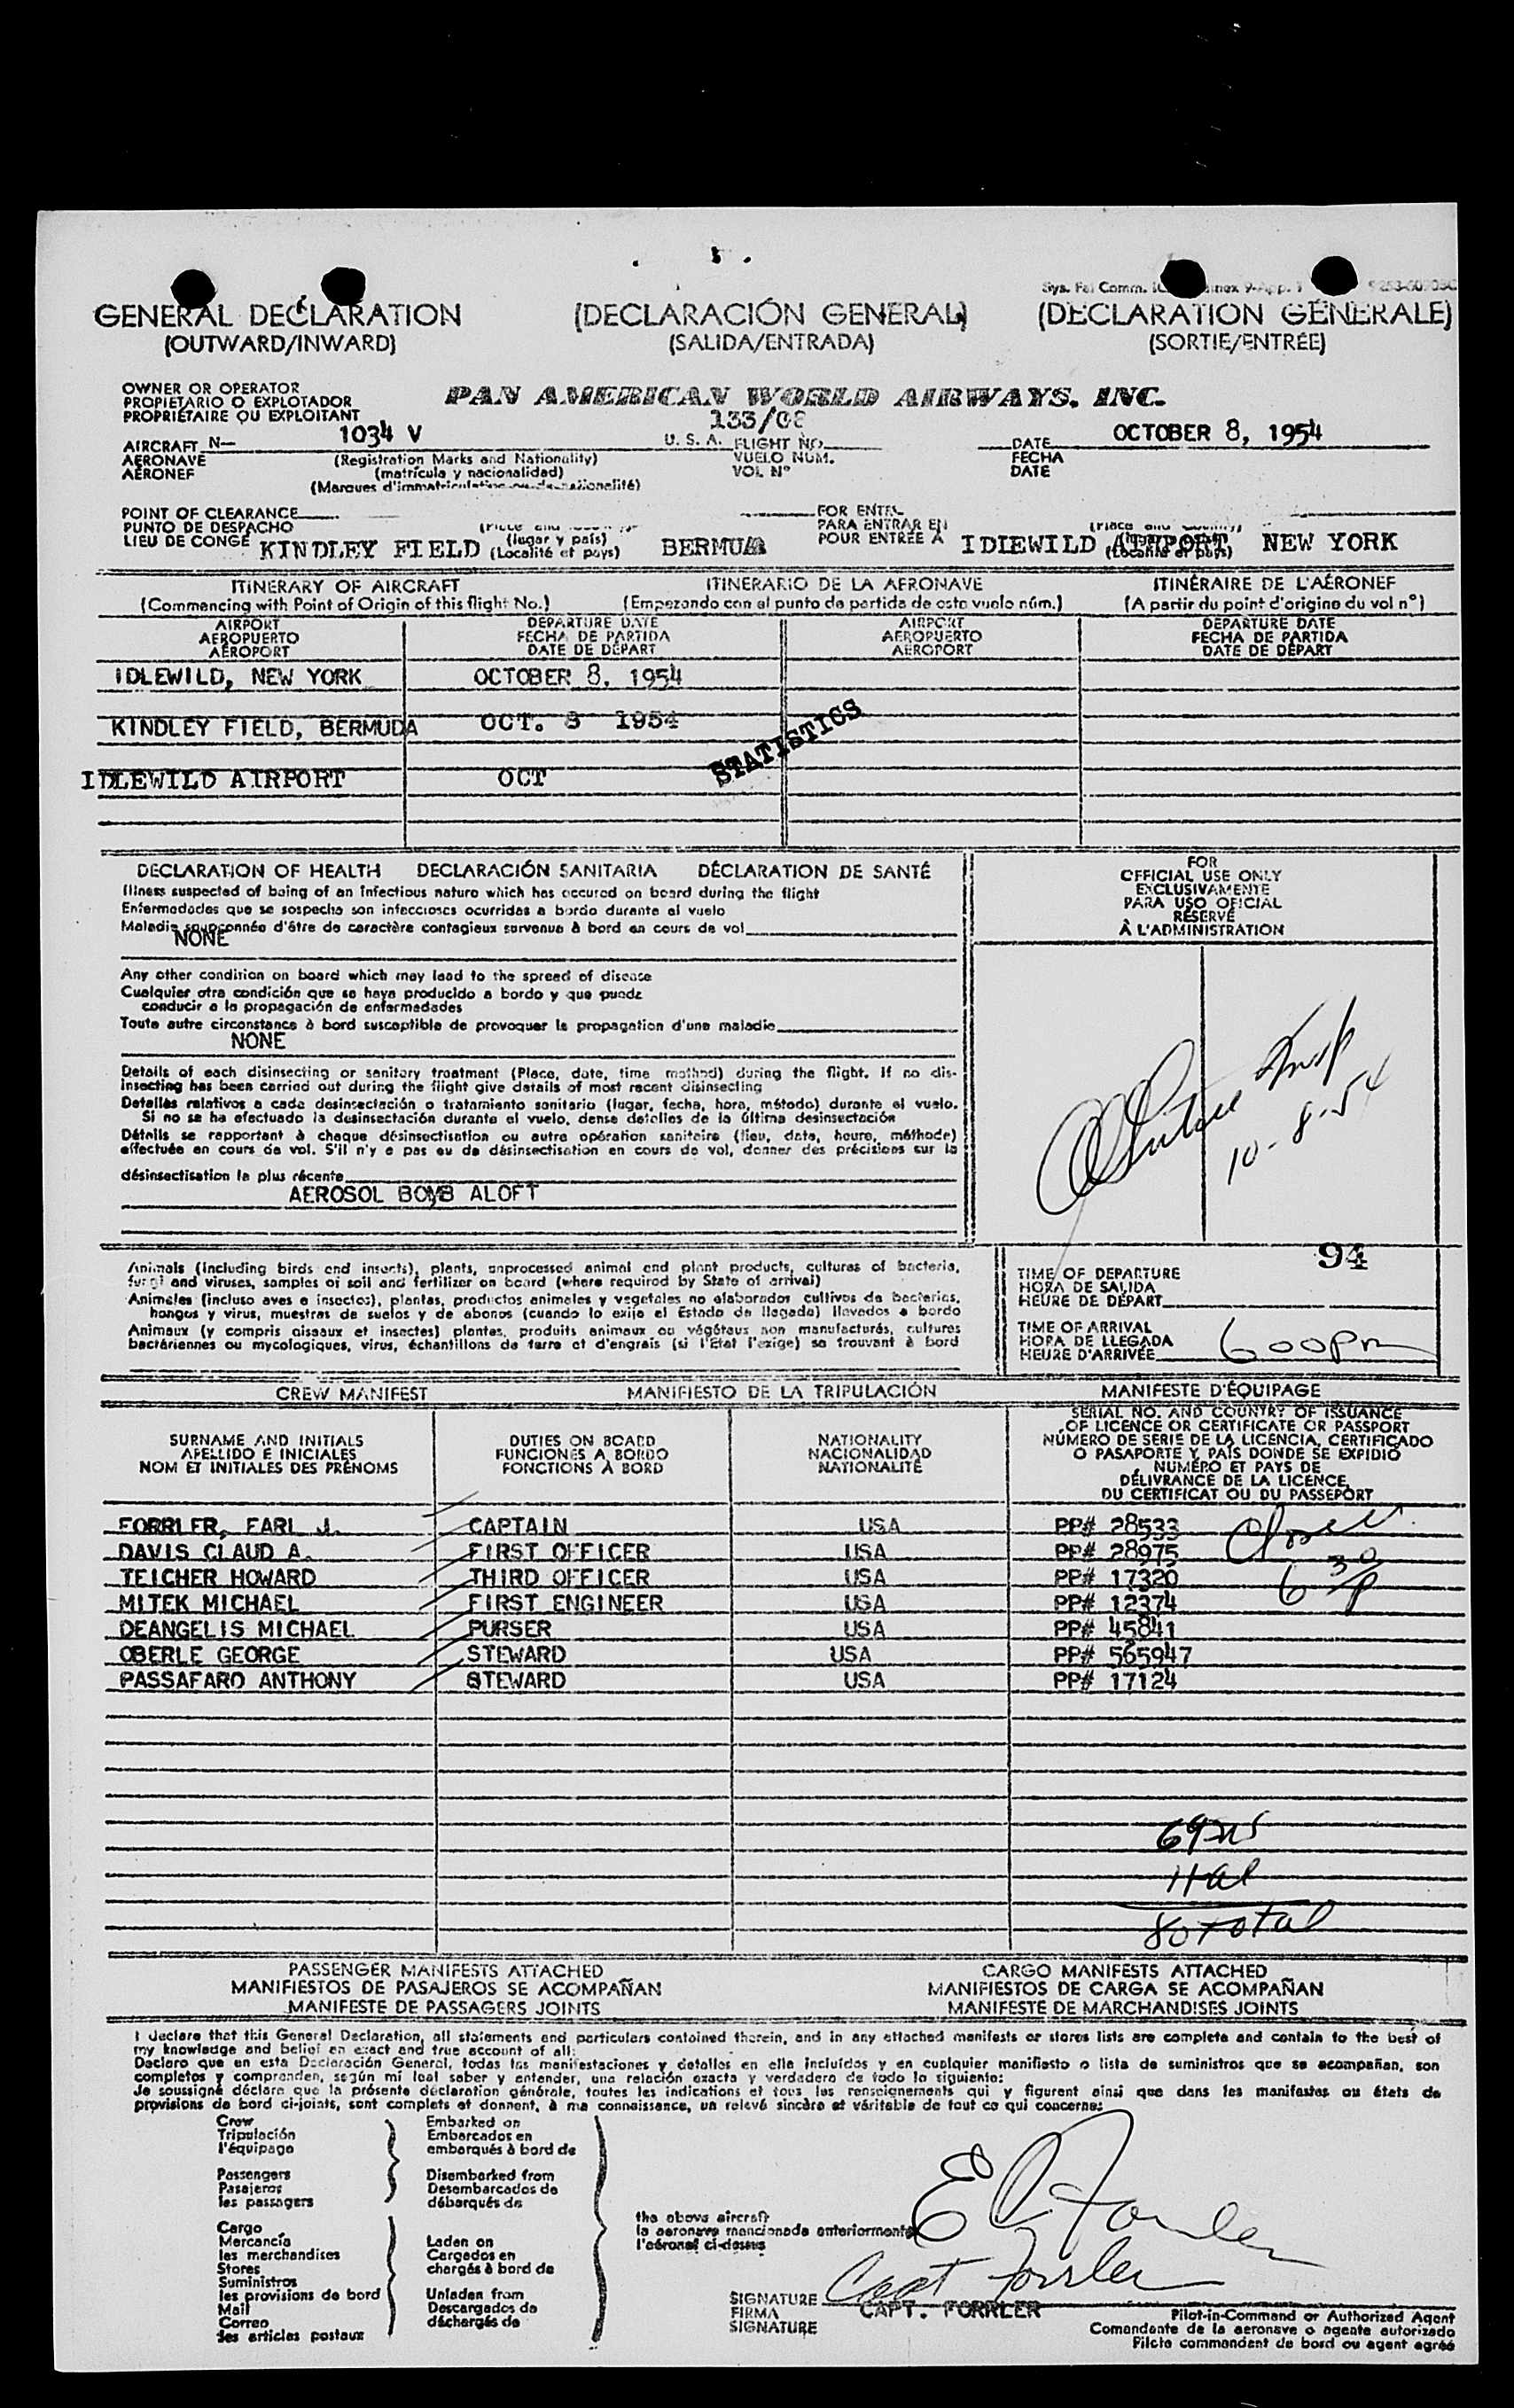 GENERAL DECLARATION (DECLARACIÓN GENERAL) (DÉCLARATION GÉNÉRALE)
(OUTWARD/INWARD) (SALIDA/ENTRADA) (SORTIE/ENTRÉE)
OWNER OR OPERATOR
PROPIETARIO O EXPLOTADOR
PROPRIÉTAIRE OU EXPLOITANT
PAN AMERICAN WORLD AIRWAYS, INC.
133/08
AIRCRAFT N— 1034 V U. S. A. FLIGHT NO. DATE OCTOBER 8, 1954
AERONAVE (Registration Marks and Nationality) VUELO NUM. FECHA
AÉRONEF (matrícula y nacionalidad) VOL N° DATE
(Marques d'immatriculation ou de nationalité)
POINT OF CLEARANCE FOR ENTRY
PUNTO DE DESPACHO PARA ENTRAR EN
LIEU DE CONGÉ KINDLEY FIELD (lugar y país) (Localité et pays) BERMUDA POUR ENTRÉE À IDIEWILD AIRPORT, NEW YORK
ITINERARY OF AIRCRAFT ITINERARIO DE LA AERONAVE ITINÉRAIRE DE L'AÉRONEF
(Commencing with Point of Origin of this flight No.) (Empezando con el punto de partida de este vuelo núm.) (A partir du point d'origine du vol n°)
AIRPORT DEPARTURE DATE AIRPORT DEPARTURE DATE
AEROPUERTO FECHA DE PARTIDA AEROPUERTO FECHA DE PARTIDA
AÉROPORT DATE DE DÉPART AÉROPORT DATE DE DÉPART
IDLEWILD, NEW YORK OCTOBER 8, 1954
KINDLEY FIELD, BERMUDA OCT. 8 1954
STATISTICS
IDLEWILD AIRPORT OCT
DECLARATION OF HEALTH DECLARACIÓN SANITARIA DÉCLARATION DE SANTÉ
Illness suspected of being of an infectious nature which has occured on board during the flight
Enfermedades que se sospecha son infecciosas ocurridas a bordo durante el vuelo
Maladie soupçonnée d'être de caractère contagieux survenue à bord en cours de vol
NONE
Any other condition on board which may lead to the spread of disease
Cualquier otra condición que se haya producido a bordo y que pueda
conducir a la propagación de enfermedades
Toute autre circonstance à bord susceptible de provoquer la propagation d'une maladie
NONE
Details of each disinsecting or sanitary treatment (Place, date, time method) during the flight. If no dis-
insecting has been carried out during the flight give details of most recent disinsecting
Detalles relativos a cada desinsectación o tratamiento sanitario (lugar, fecha, hora, método) durante el vuelo.
Si no se ha efectuado la desinsectación durante el vuelo, dense detalles de la última desinsectación
Détails se rapportant à chaque désinsectisation ou autre opération sanitaire (lieu, date, heure, méthode)
effectuée en cours de vol. S'il n'y a pas eu de désinsectisation en cours de vol, donner des précisions sur la
désinsectisation la plus récente
AEROSOL BOMB ALOFT
FOR
OFFICIAL USE ONLY
EXCLUSIVAMENTE
PARA USO OFICIAL
RÉSERVÉ
À L'ADMINISTRATION
10-8-54
94
Animals (including birds and insects), plants, unprocessed animal and plant products, cultures of bacteria,
fungi and viruses, samples of soil and fertilizer on board (where required by State of arrival)
Animales (incluso aves e insectos), plantas, productos animales y vegetales no elaborados cultivos de bacterias,
hongos y virus, muestras de suelos y de abonos (cuando lo exija el Estado de llegada) llevados a bordo
Animaux (y compris oiseaux et insectes) plantes, produits animaux ou végétaux non manufacturés, cultures
bactériennes ou mycologiques, virus, échantillons de terre et d'engrais (si l'État l'exige) se trouvant à bord
TIME OF DEPARTURE
HORA DE SALIDA
HEURE DE DÉPART
TIME OF ARRIVAL
HORA DE LLEGADA
HEURE D'ARRIVÉE 600pm
CREW MANIFEST MANIFIESTO DE LA TRIPULACIÓN MANIFESTE D'ÉQUIPAGE
SURNAME AND INITIALS
APELLIDO E INICIALES
NOM ET INITIALES DES PRÉNOMS
DUTIES ON BOARD
FUNCIONES A BORDO
FONCTIONS À BORD
NATIONALITY
NACIONALIDAD
NATIONALITÉ
SERIAL NO. AND COUNTRY OF ISSUANCE
OF LICENCE OR CERTIFICATE OR PASSPORT
NÚMERO DE SERIE DE LA LICENCIA, CERTIFICADO
O PASAPORTE Y PAÍS DONDE SE EXPIDIÓ
NUMÉRO ET PAYS DE
DÉLIVRANCE DE LA LICENCE,
DU CERTIFICAT OU DU PASSEPORT
FORRLER, EARL J. CAPTAIN USA PP# 28533
DAVIS CLAUD A. FIRST OFFICER USA PP# 28975
TEICHER HOWARD THIRD OFFICER USA PP# 17320 6 30 P
MITEK MICHAEL FIRST ENGINEER USA PP# 12374
DEANGELIS MICHAEL PURSER USA PP# 45841
OBERLE GEORGE STEWARD USA PP# 565947
PASSAFARO ANTHONY STEWARD USA PP# 17124
69 us
11 al
80 total
PASSENGER MANIFESTS ATTACHED CARGO MANIFESTS ATTACHED
MANIFIESTOS DE PASAJEROS SE ACOMPAÑAN MANIFIESTOS DE CARGA SE ACOMPAÑAN
MANIFESTE DE PASSAGERS JOINTS MANIFESTE DE MARCHANDISES JOINTS
I declare that this General Declaration, all statements and particulars contained therein, and in any attached manifests or stores lists are complete and contain to the best of
my knowledge and belief an exact and true account of all:
Declaro que en esta Declaración General, todas las manifestaciones y detalles en ella incluídos y en cualquier manifiesto o lista de suministros que se acompañan, son
completos y comprenden, según mi leal saber y entender, una relación exacta y verdadera de todo lo siguiente:
Je soussigné déclare que la présente déclaration générale, toutes les indications et tous les renseignements qui y figurent ainsi que dans les manifestes ou états de
provisions de bord ci-joints, sont complets et donnent, à ma connaissance, un relevé sincère et véritable de tout ce qui concerne:
Crew Embarked on
Tripulación Embarcados en
l'équipage embarqués à bord de
Passengers Disembarked from
Pasajeros Desembarcados de
les passagers débarqués de
the above aircraft
la aeronave mencionada anteriormente
l'aéronef ci-dessus
Cargo
Mercancía Laden on
les merchandises Cargados en
Stores chargés à bord de
Suministros
les provisions de bord Unladen from
Mail Descargados de
Correo déchargés de
les articles postaux
E J Forrler
Capt Forrler
SIGNATURE CAPT. FORRLER
FIRMA
SIGNATURE
Pilot-in-Command or Authorized Agent
Comandante de la aeronave o agente autorizado
Pilote commandant de bord ou agent agréé